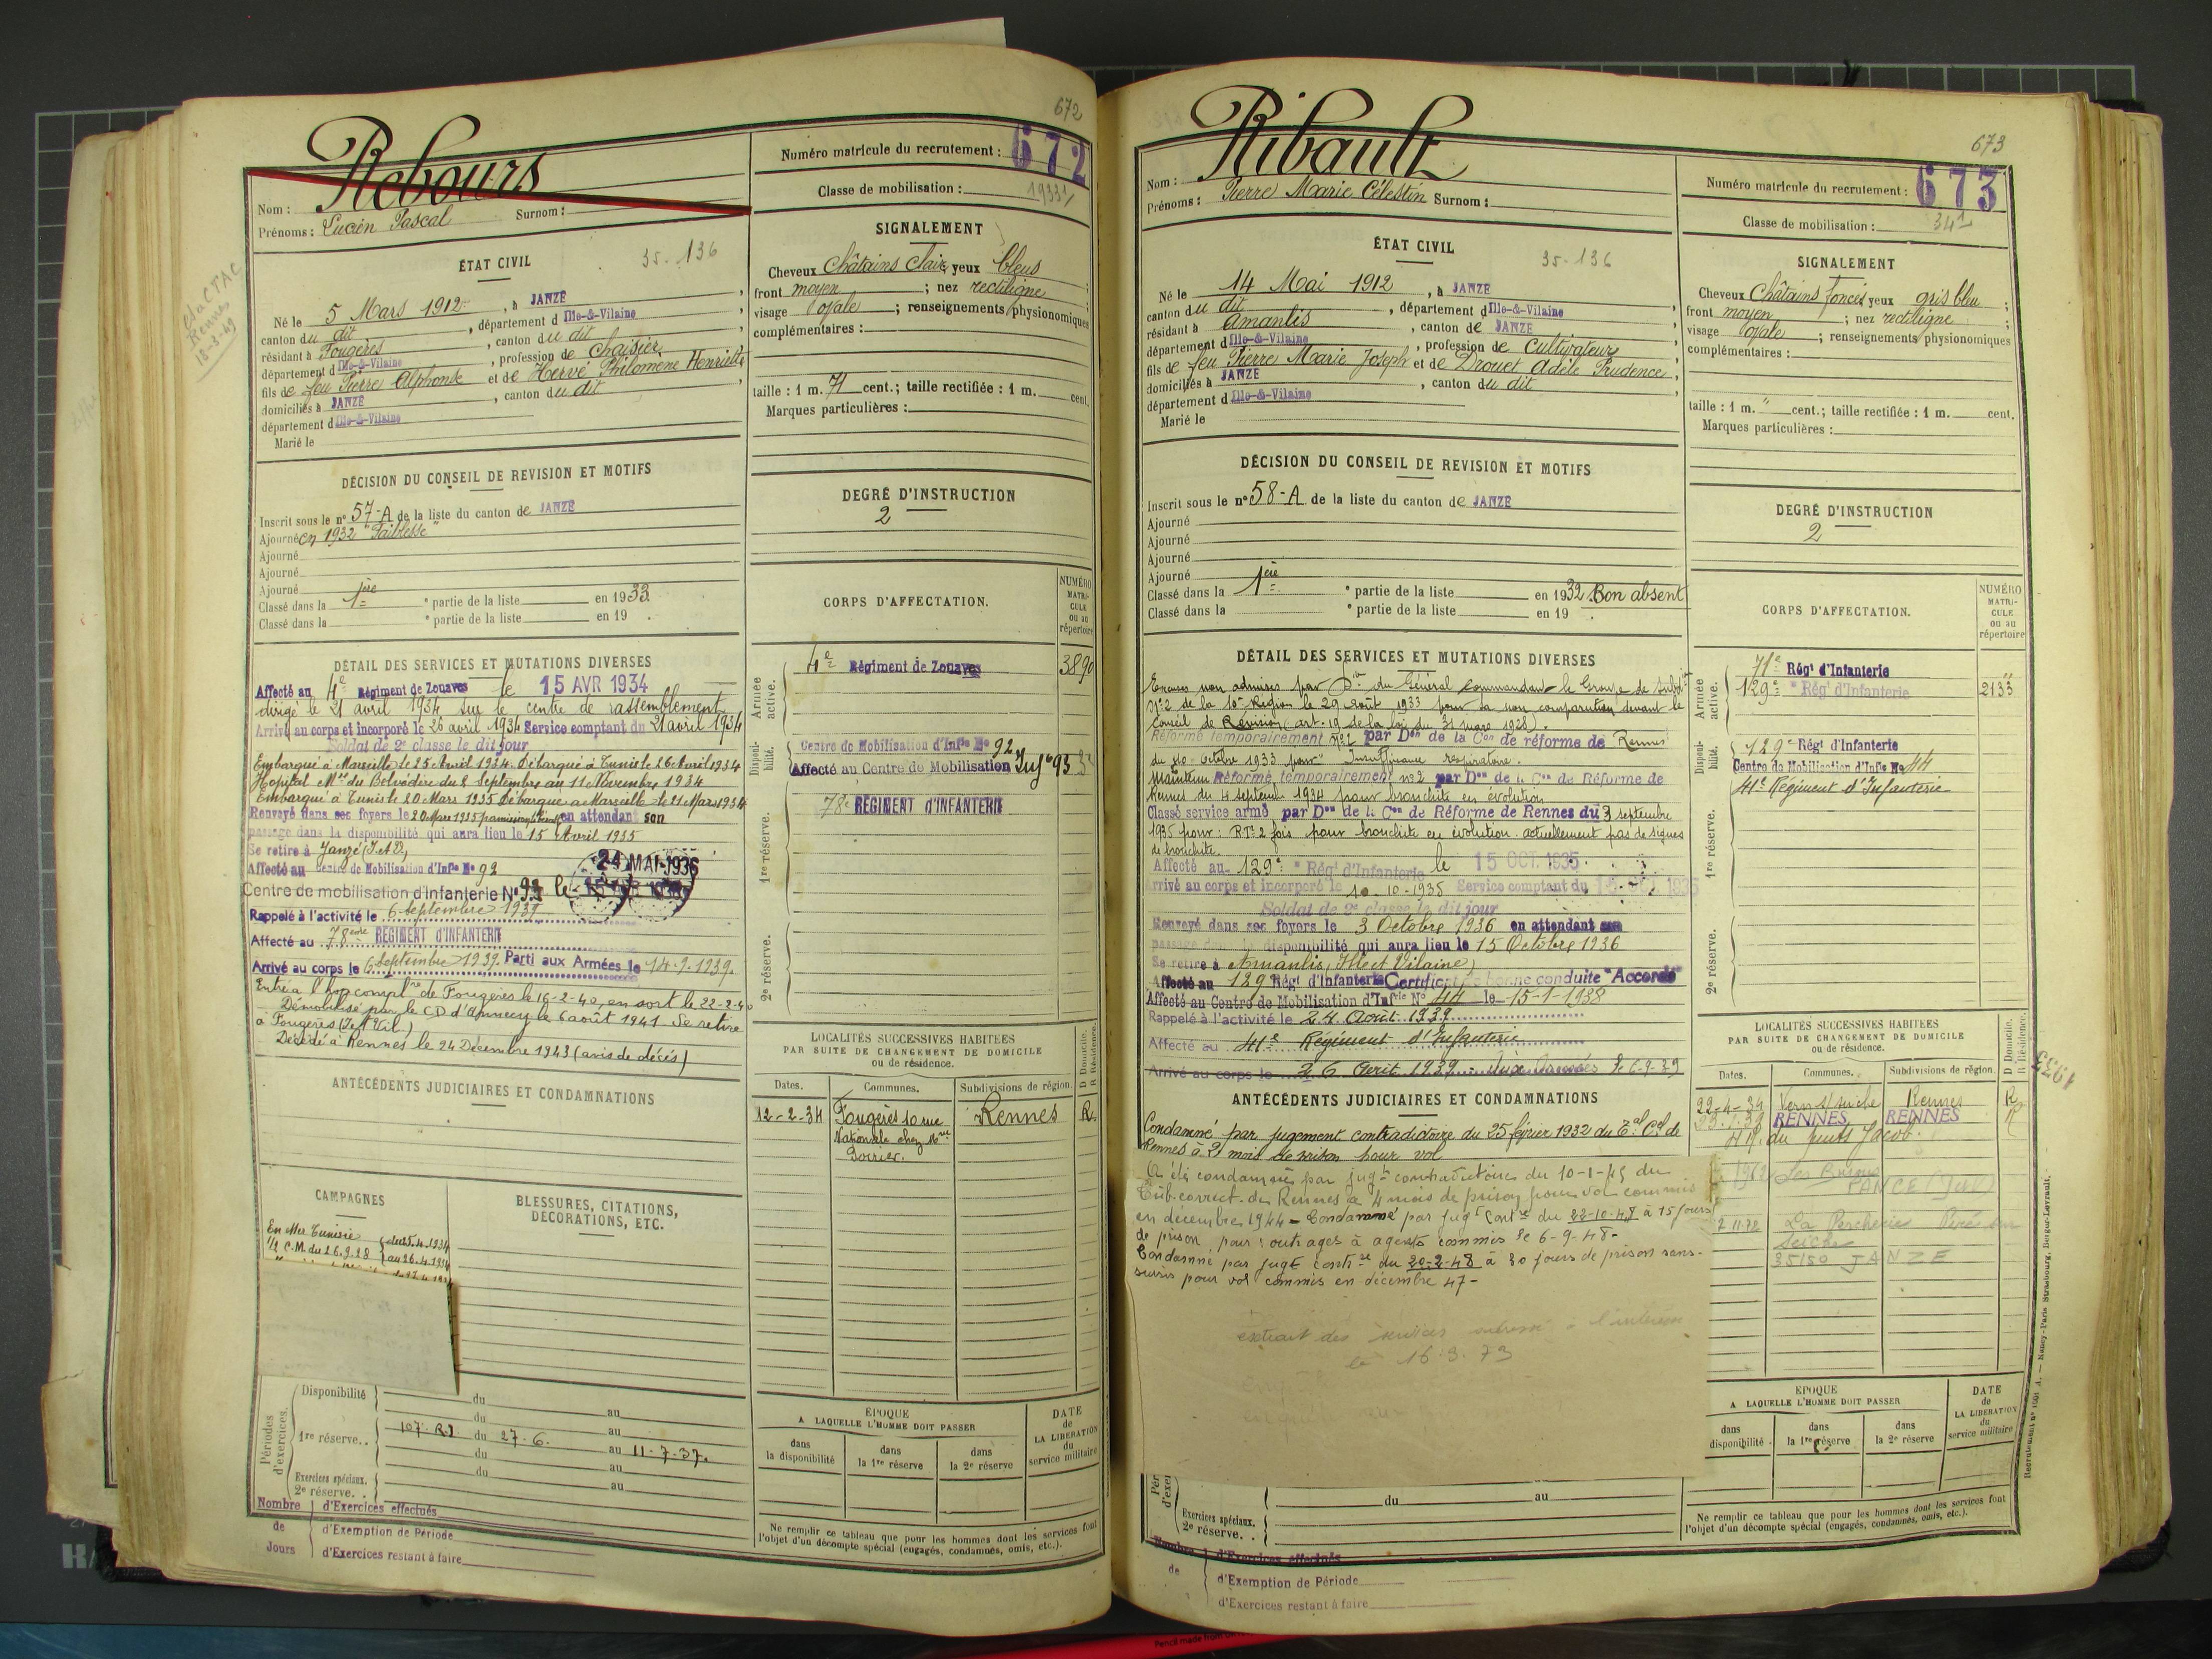 672
Rebours
Nom :
Prénoms : Lucien Pascal Surnom :
Numéro matricule du recrutement : 672
Classe de mobilisation :
ÉTAT CIVIL
35-136
Né le 5 Mars 1912 , à JANZÉ ,
canton du dit , département d Ille-&-Vilaine ,
résidant à Fougères , canton du dit ,
département d Ille-&-Vilaine , profession de Chaisier
fils de feu Pierre Alphonse et de Hervé Philomène Henriette
domiciliés à JANZÉ , canton du dit ,
département d Ille-&-Vilaine
Marié le
SIGNALEMENT
Cheveux Châtains clair yeux bleus ;
front moyen ; nez rectiligne ;
visage ovale ; renseignements physionomiques
complémentaires :
taille : 1 m. 71 cent.; taille rectifiée : 1 m. cent.
Marques particulières :
DÉCISION DU CONSEIL DE REVISION ET MOTIFS
Inscrit sous le nº 57-A de la liste du canton de JANZÉ
Ajourné en 1932 "Faiblesse"
Ajourné
Ajourné
Ajourné
Classé dans la 1ère ᵉ partie de la liste en 1933
Classé dans la ᵉ partie de la liste en 19 .
DEGRÉ D'INSTRUCTION
2
CORPS D'AFFECTATION.
NUMÉRO MATRI-CULE ou au répertoire
Armée active.
4e Régiment de Zouaves 3890
Disponibilité.
Centre de Mobilisation d'Infie No 92
Affecté au Centre de Mobilisation Infie 93
1re réserve.
78e RÉGIMENT D'INFANTERIE
2e réserve.
DÉTAIL DES SERVICES ET MUTATIONS DIVERSES
Affecté au 4e Régiment de Zouaves le 15 AVR 1934
dirigé le 21 avril 1934 sur le centre de rassemblement
Arrivé au corps et incorporé le 26 avril 1934 Service comptant du 21 avril 1934
Soldat de 2e classe le dit jour
Embarqué à Marseille le 25 Avril 1934. Débarqué à Tunis le 26 Avril 1934
Hopital Mre du Belvédère du 8 Septembre au 11 Novembre 1934
Embarqué à Tunis le 20 Mars 1935 Débarqué à Marseille le 21 Mars 1935
Renvoyé dans ses foyers le 20 Mars 1935 en attendant son
passage dans la disponibilité qui aura lieu le 15 Avril 1935
Se retire à Janzé (I. et V)
Affecté au Centre de Mobilisation d'Infie No 92
Centre de mobilisation d'Infanterie No 93 le 24 MAI 1936
Rappelé à l'activité le 6 Septembre 1939
Affecté au 78ème RÉGIMENT D'INFANTERIE
Arrivé au corps le 6 Septembre 1939. Parti aux Armées le 14-9-1939.
Entré à l'hop compl re de Fougères le 16-2-40, en sort le 22-2-40
Démobilisé par le CD d'Annecy le 6 août 1941 Se retire
à Fougères (I et Vil.)
Décédé à Rennes le 24 Décembre 1943 (avis de décès)
ANTÉCÉDENTS JUDICIAIRES ET CONDAMNATIONS
LOCALITÉS SUCCESSIVES HABITÉES
PAR SUITE DE CHANGEMENT DE DOMICILE
ou de résidence.
D Domicile. R Résidence.
Dates. Communes. Subdivisions de région.
12-2-34 Fougères 10 rue Rennes R.
Nationale chez Mme
Poirier.
CAMPAGNES
BLESSURES, CITATIONS,
DÉCORATIONS, ETC.
En Mer Tunisie du 25.4.1934
1/2 C.M. du 26.9.28 au 26.4.1934
Périodes d'exercices.
Disponibilité du au
1re réserve.. 107 R.I du 27-6. au 11-7-37.
du au
Exercices spéciaux. du au
2e réserve. .
Nombre de Jours
d'Exercices effectués
d'Exemption de Période
d'Exercices restant à faire
ÉPOQUE
A LAQUELLE L'HOMME DOIT PASSER
dans la disponibilité
dans la 1re réserve
dans la 2e réserve
DATE de LA LIBÉRATION du service militaire
Ne remplir ce tableau que pour les hommes dont les services font
l'objet d'un décompte spécial (engagés, condamnés, omis, etc.).
673
Ribault
Nom :
Prénoms : Pierre Marie Célestin Surnom :
Numéro matricule du recrutement : 673
Classe de mobilisation : 341
ÉTAT CIVIL
35-136
Né le 14 Mai 1912 , à JANZÉ
canton du dit , département d Ille-&-Vilaine ,
résidant à Amanlis , canton de JANZÉ ,
département d Ille-&-Vilaine , profession de Cultivateur
fils de feu Pierre Marie Joseph et de Drouet Adèle Prudence ,
domiciliés à JANZÉ , canton du dit ,
département d Ille-&-Vilaine
Marié le
SIGNALEMENT
Cheveux Châtains foncés yeux gris bleu ;
front moyen ; nez rectiligne ;
visage ovale ; renseignements physionomiques
complémentaires :
taille : 1 m. " cent.; taille rectifiée : 1 m. cent.
Marques particulières :
DÉCISION DU CONSEIL DE REVISION ET MOTIFS
Inscrit sous le nº 58-A de la liste du canton de JANZÉ
Ajourné
Ajourné
Ajourné
Ajourné
Classé dans la 1ère ᵉ partie de la liste en 1932 Bon absent
Classé dans la ᵉ partie de la liste en 19 .
DEGRÉ D'INSTRUCTION
2
CORPS D'AFFECTATION.
NUMÉRO MATRI-CULE ou au répertoire
Armée active.
71e Régt d'Infanterie
129e Régt d'Infanterie 2133
Disponibilité.
129e Régt d'Infanterie
Centre de Mobilisation d'Infie No 44
41e Régiment d'Infanterie
1re réserve.
2e réserve.
DÉTAIL DES SERVICES ET MUTATIONS DIVERSES
Excuses non admises par Don du Général commandant le Groupe de Subdon
no 2 de la 10e Région le 29 Août 1933 pour sa non comparution devant le
Conseil de Révision (art. 19 de la loi du 31 mars 1928).
Réformé temporairement No 2 par Don de la Con de réforme de Rennes
du 10 Octobre 1933 pour Insuffisance respiratoire.
Maintenu Réformé temporairement no 2 par Don de la Con de Réforme de
Rennes du 4 Septembre 1934 pour bronchite en évolution
Classé service armé par Don de la Con de Réforme de Rennes du 3 septembre
1935 pour : RT 2 fois pour bronchite en évolution actuellement pas de signes
de bronchite.
Affecté au 129e Régt d'Infanterie le 15 OCT. 1935
Arrivé au corps et incorporé le 10-1935 Service comptant du
Soldat de 2e classe le dit jour
Renvoyé dans ses foyers le 3 Octobre 1936 en attendant son
passage dans la disponibilité qui aura lieu le 15 Octobre 1936
Se retire à Amanlis (Ille et Vilaine)
Affecté au 129 Régt d'Infanterie Certificat de bonne conduite "Accordé"
Affecté au Centre de Mobilisation d'Infrie No 44 le 15-1-1938
Rappelé à l'activité le 24 Août 1939
Affecté au 41e Régiment d'Infanterie
Arrivé au corps le 26 Août 1939 Aux Armées le 6-9-39
ANTÉCÉDENTS JUDICIAIRES ET CONDAMNATIONS
Condamné par jugement contradictoire du 25 février 1932 du Tal Cel de
Rennes à 2 mois de prison pour vol
A été condamné par jugt contradictoire du 10-1-45 du
Trib. correct. de Rennes à 4 mois de prison pour vol commis
en décembre 1944 - Condamné par jugt contre du 22-10-48 à 15 jours
de prison pour : outrages à agents commis le 6-9-48-
Condamné par jugt contre du 20-2-48 à 30 jours de prison sans-
sursis pour vol commis en décembre 47-
extrait des services adressé à l'intéressé
le 16.3.73
LOCALITÉS SUCCESSIVES HABITÉES
PAR SUITE DE CHANGEMENT DE DOMICILE
ou de résidence.
D Domicile. R Résidence.
Dates. Communes. Subdivisions de région.
22-4-34 Vern s/ seiche Rennes R
RENNES RENNES R
du puits Jacob.
PANCÉ
11.72 La Percherie Piré sur
Seiche
35150 JANZÉ
du au
Exercices spéciaux.
2e réserve. .
d'Exercices effectués
de
d'Exemption de Période
d'Exercices restant à faire
ÉPOQUE
A LAQUELLE L'HOMME DOIT PASSER
dans disponibilité
dans la 1re réserve
dans la 2e réserve
DATE de LA LIBÉRATION du service militaire
Ne remplir ce tableau que pour les hommes dont les services font
l'objet d'un décompte spécial (engagés, condamnés, omis, etc.).